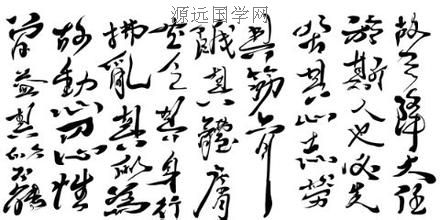 源远国学网
故天降大任
於斯人也必先
苦其心志勞
其筋骨
餓其體膚
空乏其身行
拂亂其所為
動心忍性
曾益其所不能